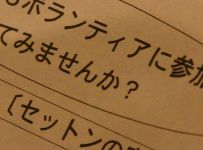 ボランティアに参加
てみませんか？
〔セットンの